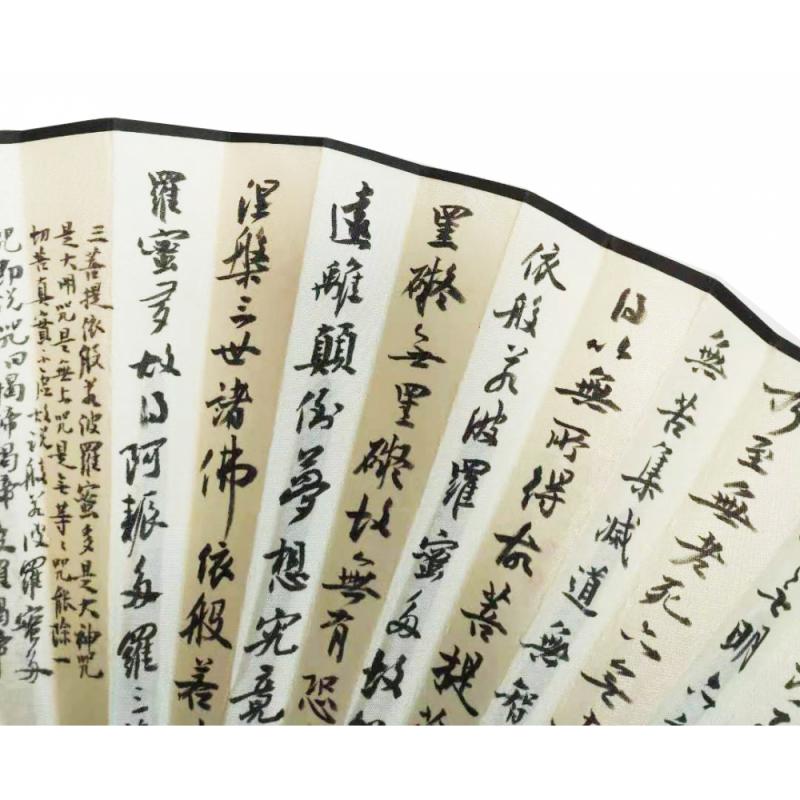 無明亦
乃至無老死亦無
無苦集減道無智
得以無所得故菩提
依般若波羅蜜多故
罣礙無罣礙故無有恐
遠離顛倒夢想究竟
涅槃三世諸佛依般若
羅蜜多故得阿耨多羅三
三菩提依般若波羅蜜多是大神咒
是大明咒是無上咒是無等等咒能除一
切苦真實不虛故說般若波羅蜜多
咒即說咒曰揭帝揭帝波羅揭帝